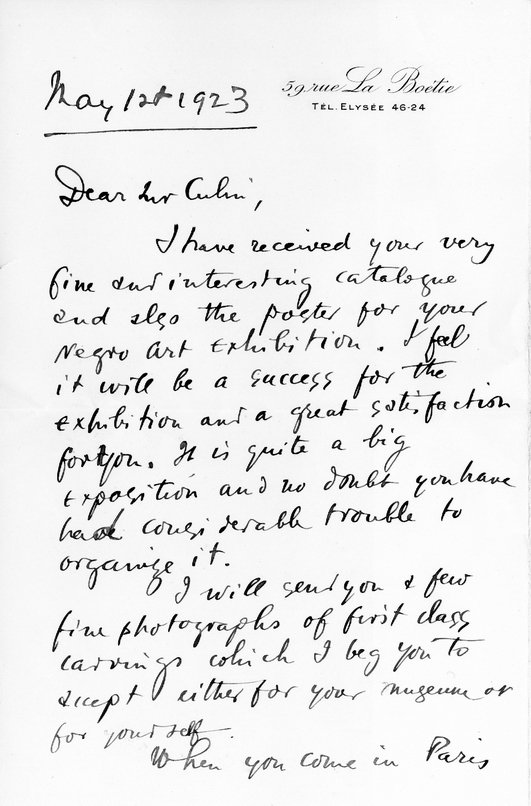 59 rue La Boëtie
TÉL. ELYSÉE 46-24
May 12t 1923
Dear Mr Culin,
I have received your very
fine and interesting catalogue
and also the poster for your
Negro Art Exhibition. I feel
it will be a success for the
exhibition and a great satisfaction
for you. It is quite a big
exposition and no doubt you have
had considerable trouble to
organize it.
I will send you a few
fine photographs of first class
carvings which I beg you to
accept either for your museum or
for yourself.
When you come in Paris